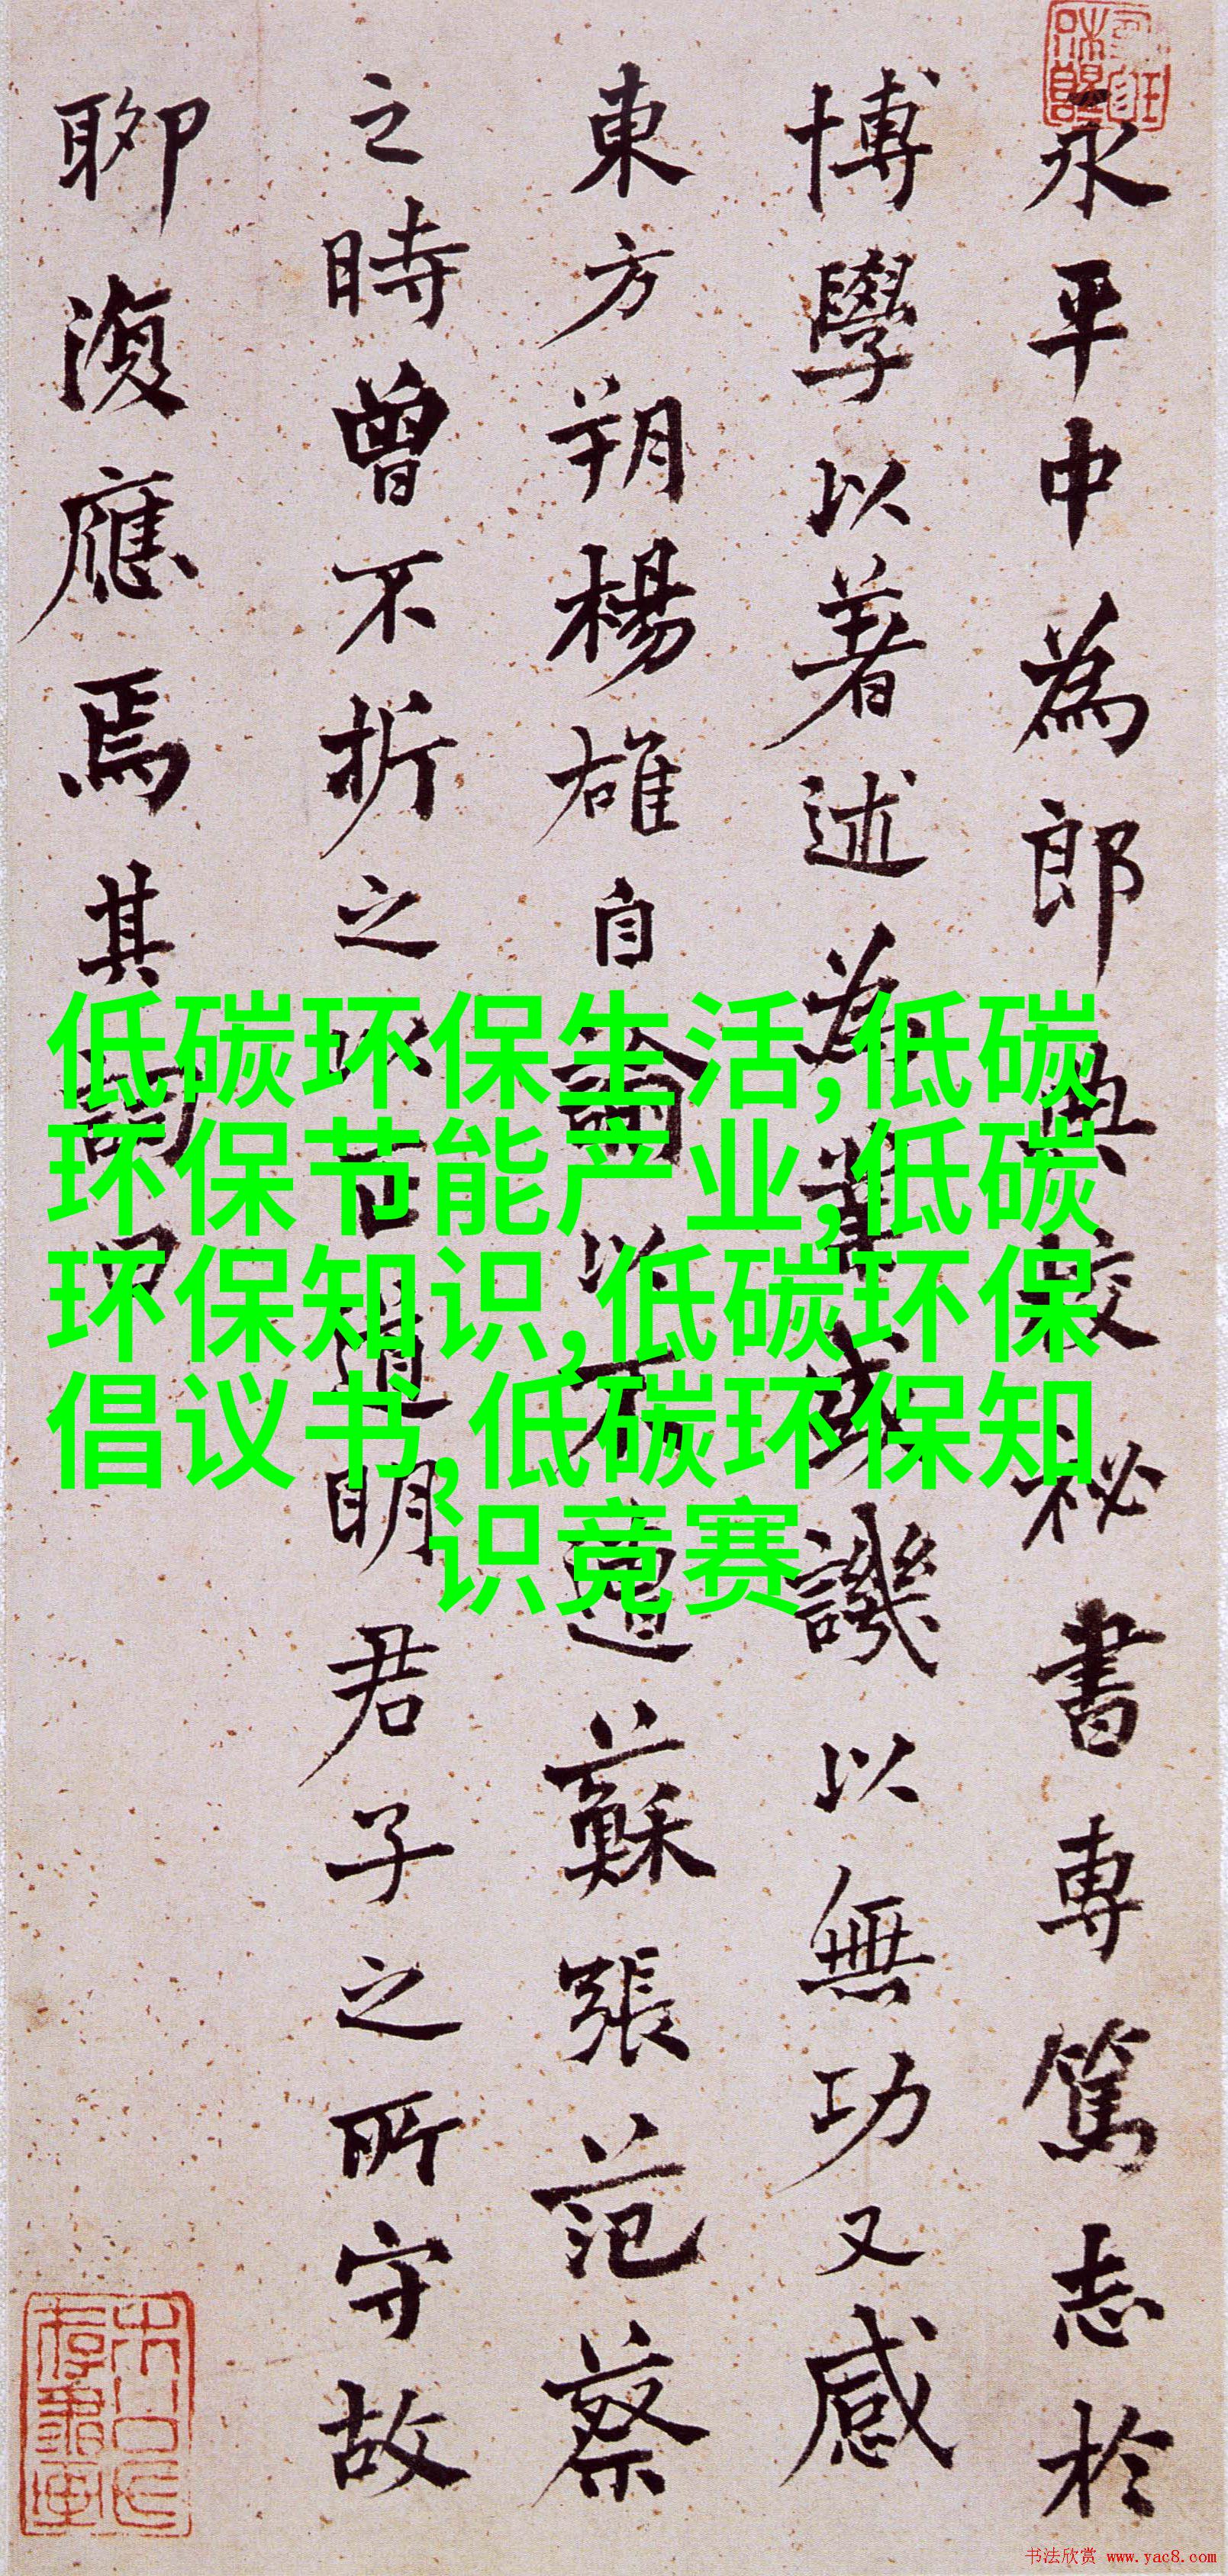 永平中為郎典校祕書專篤志於
博學以著述為業或譏以無功又感
東方朔楊雄自論以不遭蘇張范蔡
之時曾不折之以正道明君子之所守故
聊復應焉其詞曰
低碳环保生活,低碳
环保节能产业,低碳
环保知识,低碳环保
倡议书,低碳环保知
识竞赛
书法欣赏 www.yac8.com